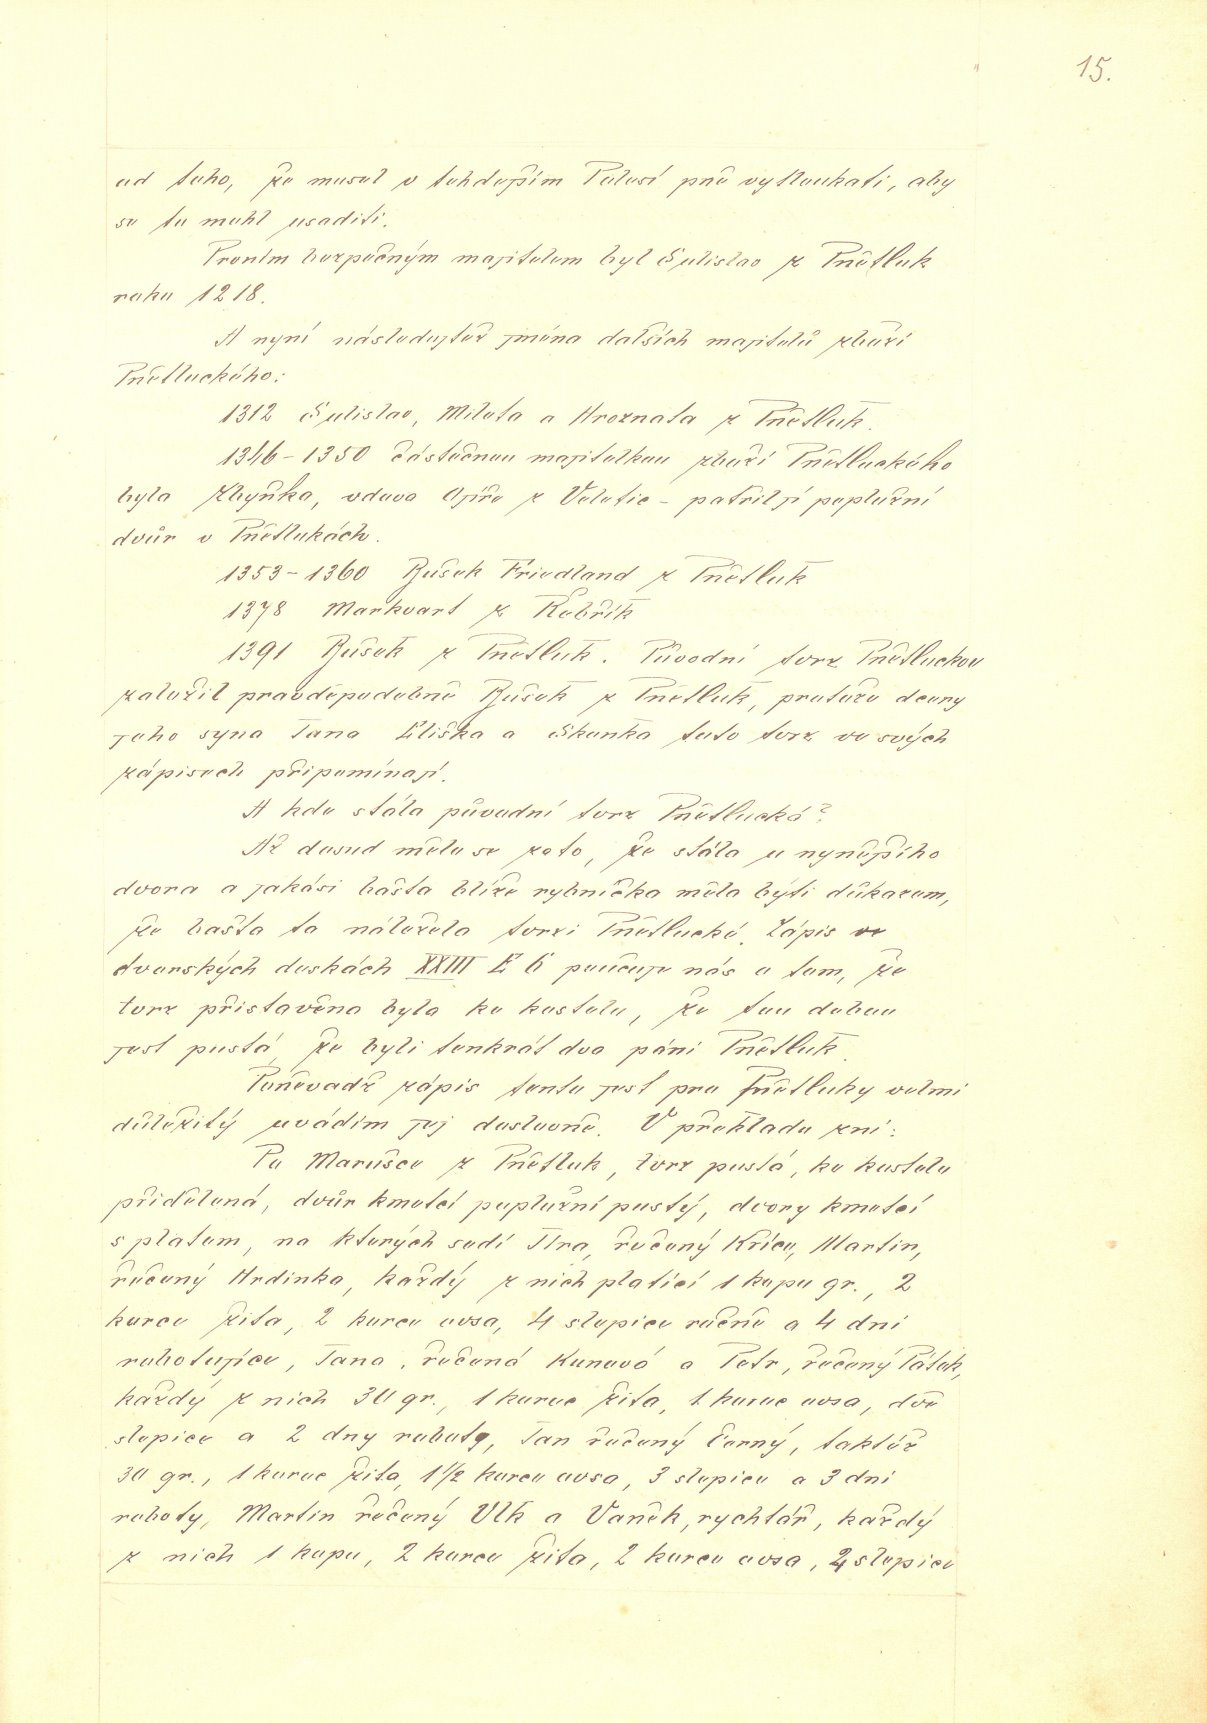 15.
od toho, že musel v tehdejším Polesí pně vytloukati, aby
se tu mohl usaditi.
Prvním bezpečným majitelem byl Sulislav z Pnětluk
roku 1218.
A nyní následujtež jména dalších majitelů zboží
Pnětluckého:
1312 Sulislav, Milota a Hroznata z Pnětluk.
1346-1350 částečnou majitelkou zboží Pnětluckého
byla Zbyňka, vdova Ojíře z Veletic - patřil jí poplužní
dvůr v Pnětlukách.
1353-1360 Bušek Friedland z Pnětluk
1378 Markvart z Kobřík
1391 Bušek z Pnětluk. Původní tvrz Pnětluckou
založil pravděpodobně Bušek z Pnětluk, protože dcery
jeho syna Jana Eliška a Skonka tuto tvrz ve svých
zápisech připomínají.
A kde stála původní tvrz Pnětlucká?
Až dosud mělo se zato, že stála u nynějšího
dvora a jakási bašta blíže rybníčka měla býti důkazem,
že bašta ta náležela tvrzi Pnětlucké. Zápis ve
dvorských deskách XXIII E 6 poučuje nás o tom, že
tvrz přistavěna byla ku kostelu, že tou dobou
jest pustá, že byli tenkrát dva páni Pnětluk.
Poněvadž zápis tento jest pro Pnětluky velmi
důležitý uvádím jej doslovně. V překladu zní:
Po Marušce z Pnětluk, tvrz pustá, ku kostelu
přidělená, dvůr kmetcí poplužní pustý, dvory kmetcí
s platem, na kterých sedí Jíra, řečený Kříce, Martin,
řečený Hrdinka, každý z nich platící 1 kopu gr., 2
korce žita, 2 korce ovsa, 4 slepice ročně a 4 dni
robotujíce, Jana, řečená Kunová a Petr, řečený Pátek,
každý z nich 30 gr., 1 korec žita, 1 korec ovsa, dvě
slepice a 2 dny roboty, Jan řečený Černý, taktéž
30 gr., 1 korec žita, 1 1/2 korce ovsa, 3 slepice a 3 dni
roboty, Martin řečený Vlk a Vaněk, rychtář, každý
z nich 1 kopu, 2 korce žita, 2 korce ovsa, 4 slepice